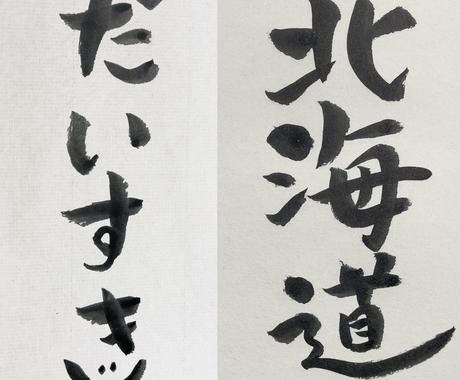 北海道
だいすき